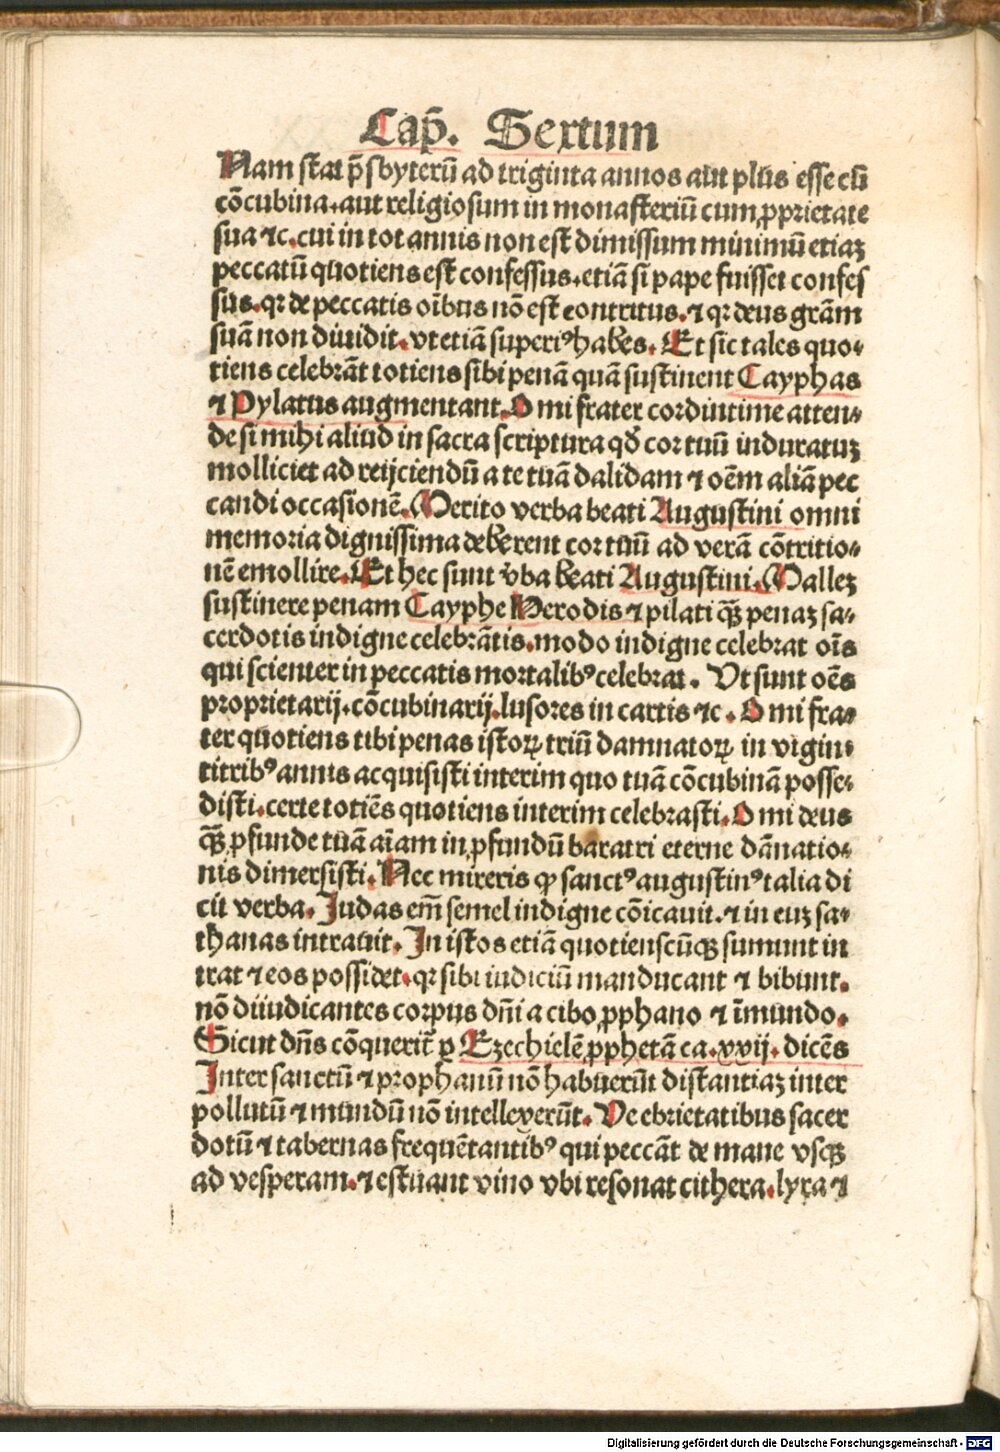 Cap̄. Sextum
Nam stat p̄sbyterū ad triginta annos aut plus esse cū
cōcubina. aut religiosum in monasteriū cum ꝓprietate
sua ⁊c. cui in tot annis non est dimissum minimū etiaꝫ
peccatū quotiens est confessus. etiā si pape fuisset confes
sus. qꝛ de peccatis oībus nō est contritus. ⁊ qꝛ deus grām
suā non diuidit. vt etiā superiꝰ habes. Et sic tales quo⸗
tiens celebrāt totiens sibi penā quā sustinent Cayphas
⁊ Pylatus augmentant. O mi frater cordintime atten⸗
de si mihi aliud in sacra scriptura qđ cor tuū induratuꝫ
molliciet ad reijciendū a te tuā dalidam ⁊ oēm aliā pec
candi occasionē. Merito verba beati Augustini omni
memoria dignissima deberent cor tuū ad verā cōtritio⸗
nē emollire. Et hec sunt v̄ba beati Augustini. Malleꝫ
sustinere penam Cayphe Herodis ⁊ pilati qꝫ̄ penaꝫ sa⸗
cerdotis indigne celebrātis. modo indigne celebrat oīs
qui scienter in peccatis mortalibꝰ celebrat. Vt sunt oēs
proprietarij. cōcubinarij. lusores in cartis ⁊c. O mi fra⸗
ter quotiens tibi penas istoꝝ triū damnatoꝝ in vigin⸗
titribꝰ annis acquisisti interim quo tuā cōcubinā posse⸗
disti. certe totiēs quotiens interim celebrasti. O mi deus
qꝫ̄ ꝓfunde tuā aīam in ꝓfundū baratri eterne dānatio⸗
nis dimersisti. Nec mireris ꝙ sanctꝰ augustinꝰ talia di
cit verba. Judas em̄ semel indigne cōicauit. ⁊ in euꝫ sa⸗
thanas intrauit. In istos etiā quotienscūqꝫ sumunt in
trat ⁊ eos possidet. qꝛ sibi iudiciū manducant ⁊ bibunt.
nō diiudicantes corpus dn̄i a cibo ꝓphano ⁊ īmundo.
Sicut dn̄s cōquerit̄ ꝑ Ezechielē ꝓphetā ca. xxij. dicēs
Inter sanctū ⁊ prophanū nō habuerūt distantiaꝫ inter
pollutū ⁊ mundū nō intellexerūt. Ve ebrietatibus sacer
dotū ⁊ tabernas frequētantibꝰ qui peccāt de mane vsqꝫ
ad vesperam. ⁊ estuant vino vbi resonat cithera. lyra ⁊
Digitalisierung gefördert durch die Deutsche Forschungsgemeinschaft - DFG